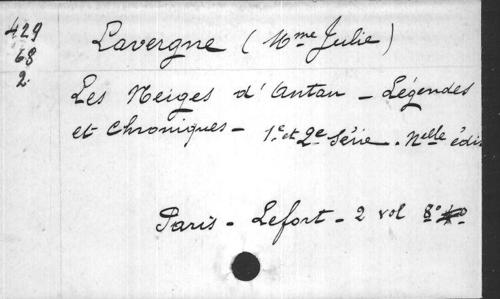 429
68
2
Lavergne (Mme Julie)
Les Neiges d'Antan - Légendes
et Chroniques - 1e et 2e Série. Nelle édi
Paris - Lefort - 2 vol 8o